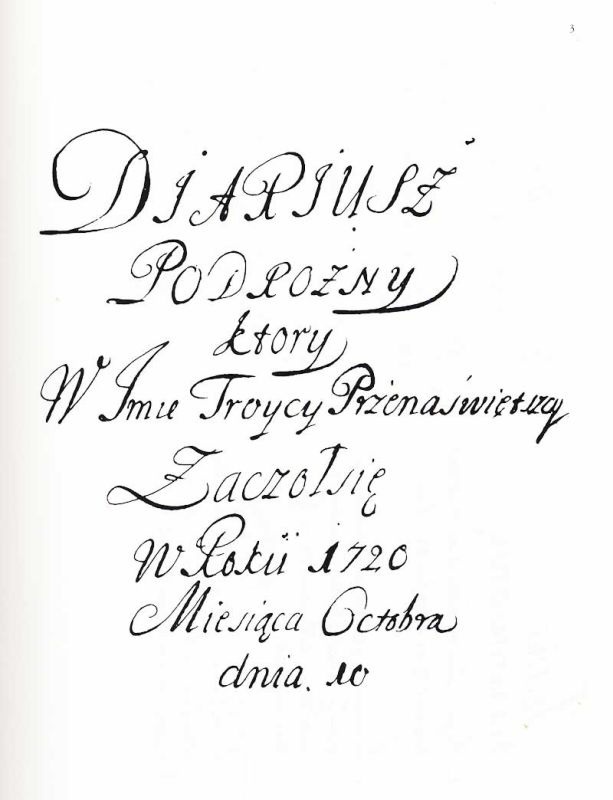 3
DIARIUSZ
PODROZNY
ktory
W Imie Troycy Przenaświętszey
Zaczołsię
W Roku 1720
Miesiąca Octobra
dnia. 10